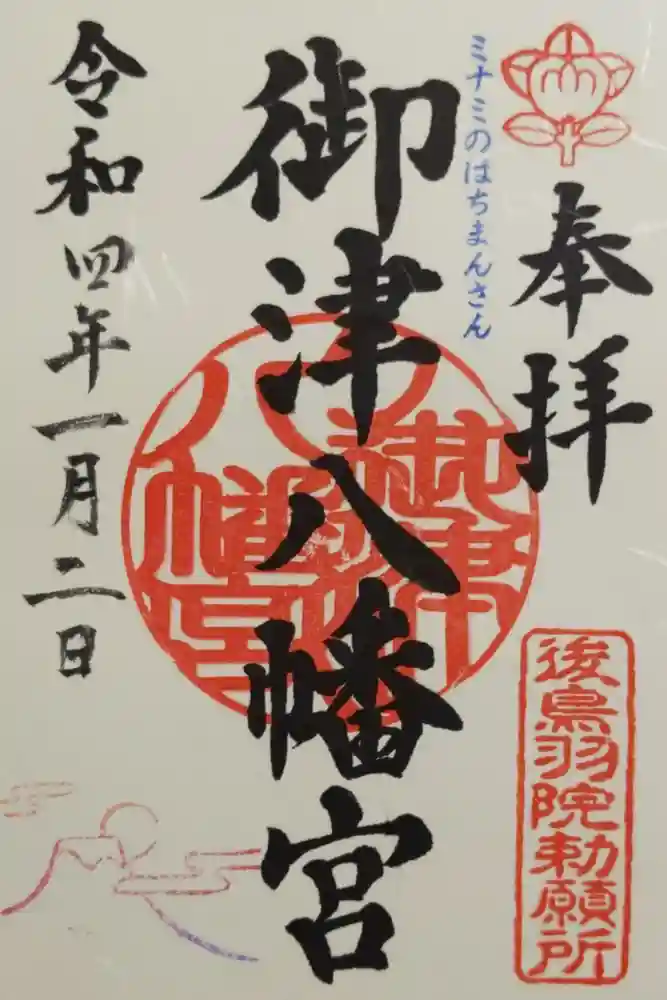 奉拝
後鳥羽院勅願所
ミナミのはちまんさん
御津八幡宮
御津八幡宮
令和四年一月二日